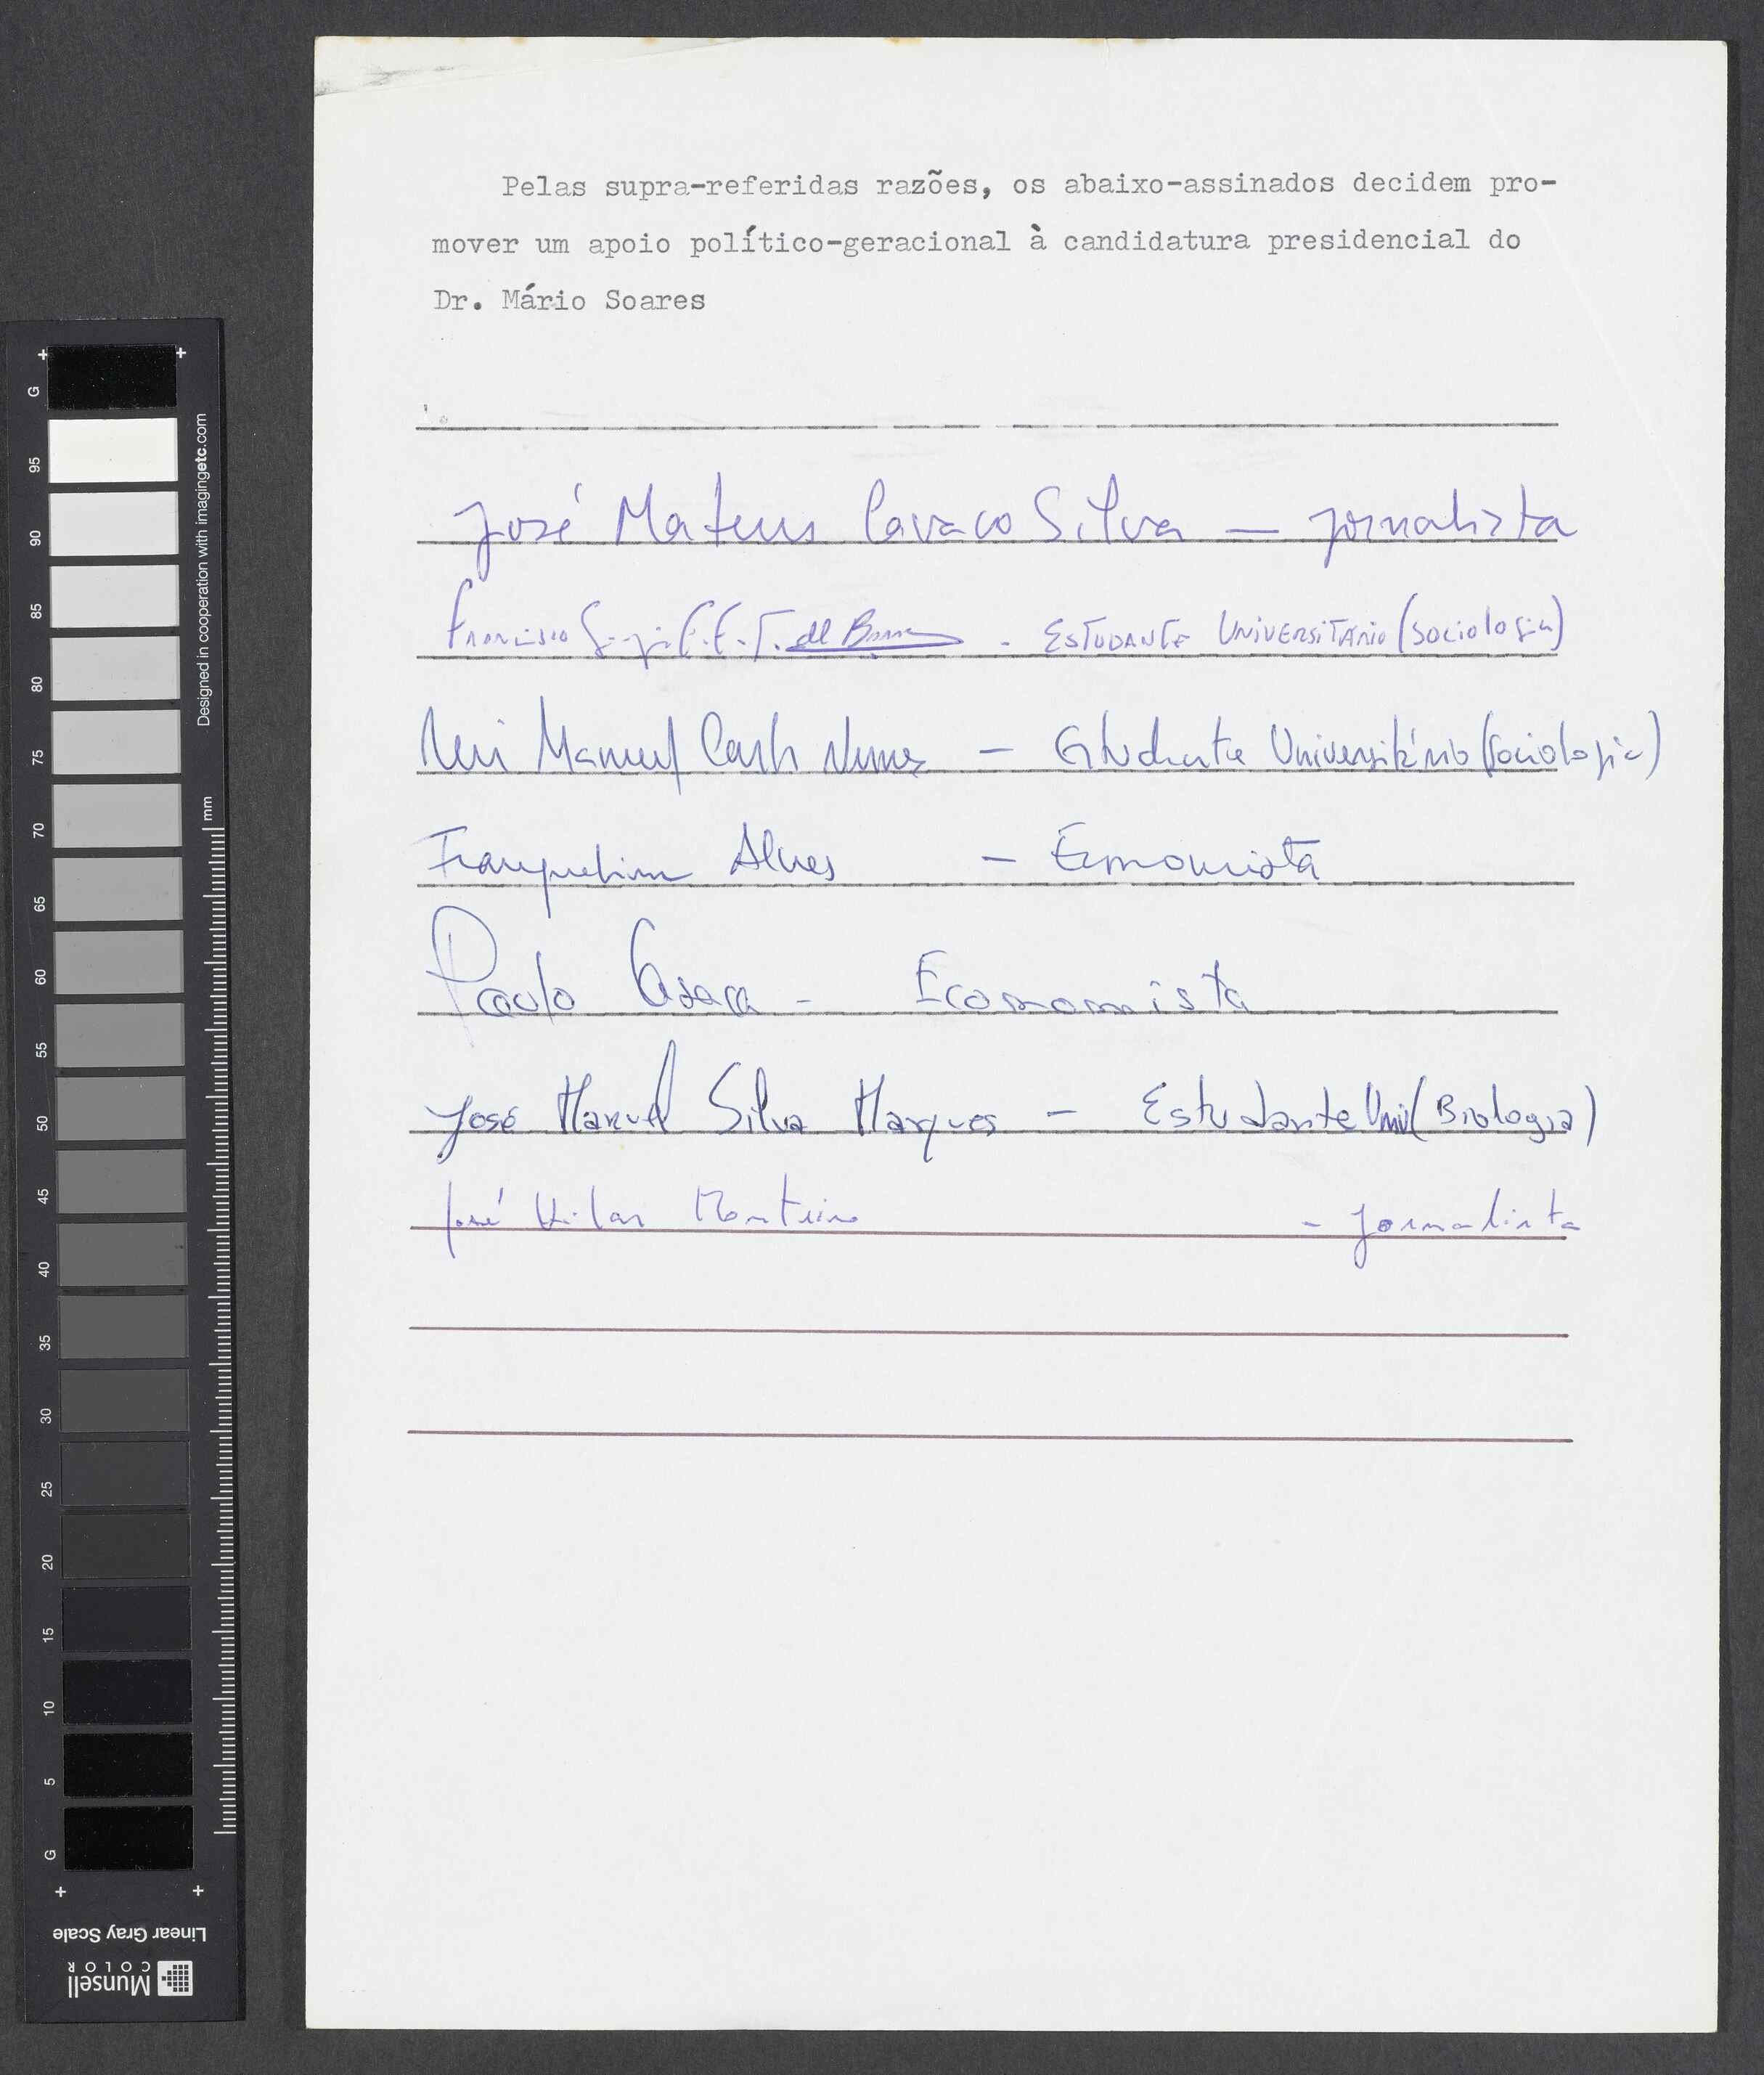 Pelas supra-referidas razões, os abaixo-assinados decidem pro-
mover um apoio político-geracional à candidatura presidencial do
Dr. Mário Soares
José Mateus Cavaco Silva — jornalista
Francisco - Estudante Universitário (Sociologia)
Rui Manuel Nunes — Estudante Universitário (Sociologia)
Franquelim Alves — Economista
Paulo Casaca - Economista
José Manuel Silva Marques — Estudante Univ (Biologia)
José Monteiro - Jornalista
G 95 90 85 80 75 70 65 60 55 50 45 40 35 30 25 20 15 10 5 G
Designed in cooperation with imagingetc.com
mm
Linear Gray Scale
Munsell
COLOR